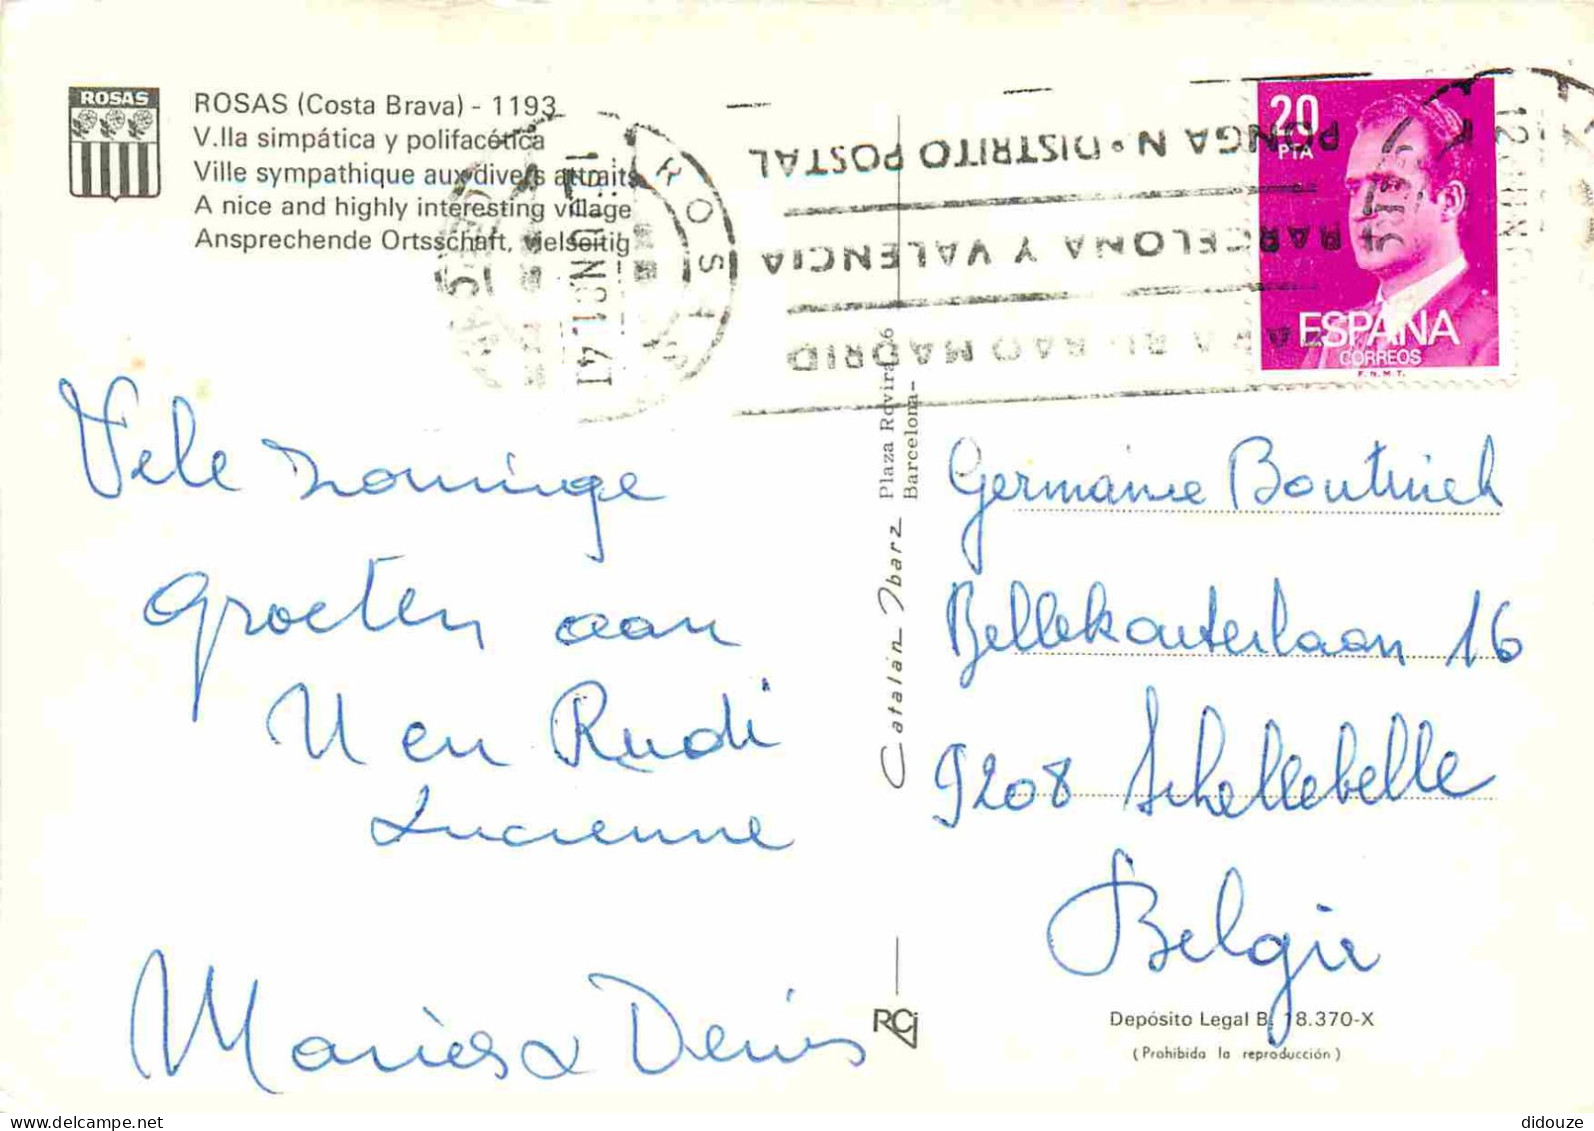 ROSAS
ROSAS (Costa Brava) - 1193
V.lla simpática y polifacética
Ville sympathique aux divers attraits
A nice and highly interesting village
Ansprechende Ortsschaft, vielseitig
PONGA N.º DISTRITO POSTAL
BARCELONA Y VALENCIA
MADRID
20
PTA
ESPAÑA
CORREOS
F.N.M.T.
Vele
Groeten aan
U en Rudi
Lucienne
Maries & Denis
Catalán Ibarz Plaza Rovira, 6
Barcelona-
Germaine
Bellekouterlaan 16
9208 Schellebelle
België
RCI
Depósito Legal B. 18.370-X
(Prohibida la reproducción)
didouze